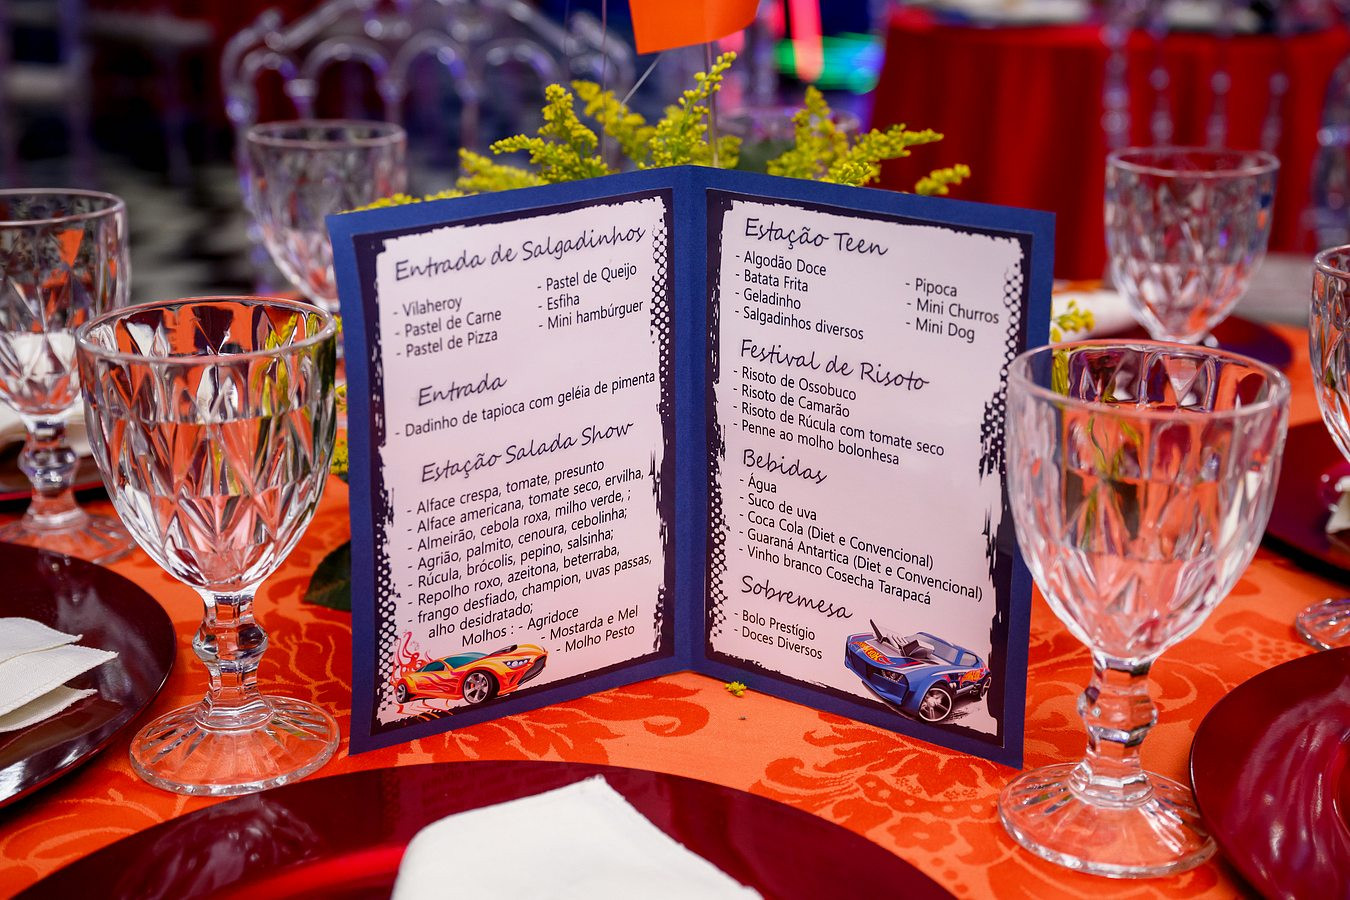 Entrada de Salgadinhos
- Vilaheroy
- Pastel de Carne
- Pastel de Pizza
- Pastel de Queijo
- Esfiha
- Mini hambúrguer
Entrada
- Dadinho de tapioca com geléia de pimenta
Estação Salada Show
- Alface crespa, tomate, presunto
- Alface americana, tomate seco, ervilha,
- Almeirão, cebola roxa, milho verde, ;
- Agrião, palmito, cenoura, cebolinha;
- Rúcula, brócolis, pepino, salsinha;
- Repolho roxo, azeitona, beterraba,
- frango desfiado, champion, uvas passas,
alho desidratado;
Molhos : - Agridoce
- Mostarda e Mel
- Molho Pesto
Estação Teen
- Algodão Doce
- Batata Frita
- Geladinho
- Salgadinhos diversos
- Pipoca
- Mini Churros
- Mini Dog
Festival de Risoto
- Risoto de Ossobuco
- Risoto de Camarão
- Risoto de Rúcula com tomate seco
- Penne ao molho bolonhesa
Bebidas
- Água
- Suco de uva
- Coca Cola (Diet e Convencional)
- Guaraná Antartica (Diet e Convencional)
- Vinho branco Cosecha Tarapacá
Sobremesa
- Bolo Prestígio
- Doces Diversos